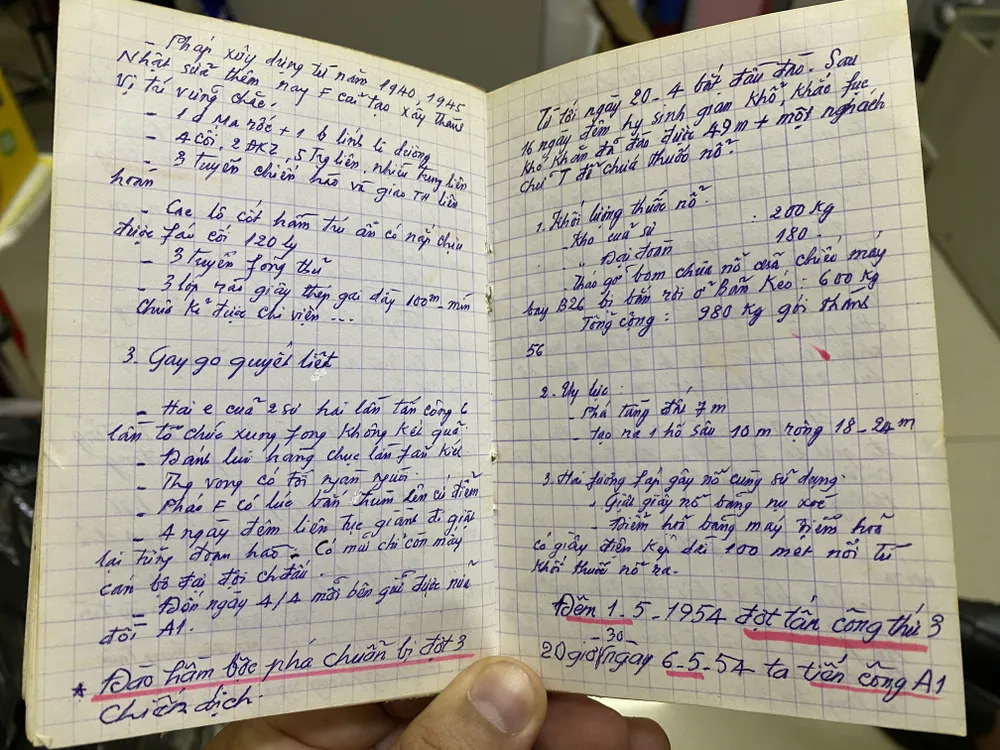 - Pháp xây dựng từ năm 1940, 1945
Nhật sửa thêm nay F cải tạo xây thêm
Vị trí vững chắc.
- 1 d Ma rốc + 1 b lính lê dương
- 4 cối, 2 ĐKZ, 5 trg liên, nhiều trung liên
- 3 tuyến chiến hào và giao TH liên
hoàn
- Các lô cốt hầm trú ẩn có nắp chịu
được fáo cối 120 ly
- 3 tuyến fòng thủ
- 3 lớp rào giây thép gai dầy 100m - mìn
Chưa kể được chi viện ...
3. Gay go quyết liệt
- Hai e của 2 sư hai lần tấn công 6
lần tổ chức xung fong không kết quả
- Đánh lui hàng chục lần fản kích
- Thg vong có tới ngàn người
- Pháo F có lúc bắn trùm lên cứ điểm
- 4 ngày đêm liên tục giành đi giật
lại từng đoạn hào. Có mũi chỉ còn mấy
cán bộ đại đội chđấu.
- Đến ngày 4/4 mỗi bên giữ được nửa
đồi A1.
* Đào hầm bộc phá chuẩn bị đợt 3
Chiến dịch.
Từ tối ngày 20-4 bắt đầu đào. Sau
16 ngày đêm hy sinh gian khổ, khắc fục
khó khăn đã đào được 49m + một nghách
chữ T để chứa thuốc nổ.
1. Khối lượng thuốc nổ
- Kho của sư : 200 kg
- " " Đại đoàn 180 -
- Tháo gỡ bom chưa nổ của chiếc máy
bay B26 bị bắn rơi ở Bản Kéo : 600 kg
Tổng cộng : 980 kg gói thành
56
2. Uy lực :
- Phá tầng đất 7m
- Tạo ra 1 hố sâu 10m rộng 18-24m
3. Hai fương fáp gây nổ cùng sử dụng.
- Giật giây nổ bằng nụ xoè
- Điểm hoả bằng máy điểm hoả
có giây điện kép dài 100 mét nối từ
khối thuốc nổ ra.
Đêm 1-5-1954 đợt tấn công thứ 3
20 giờ 30 ngày 6-5-54 ta tiến công A1